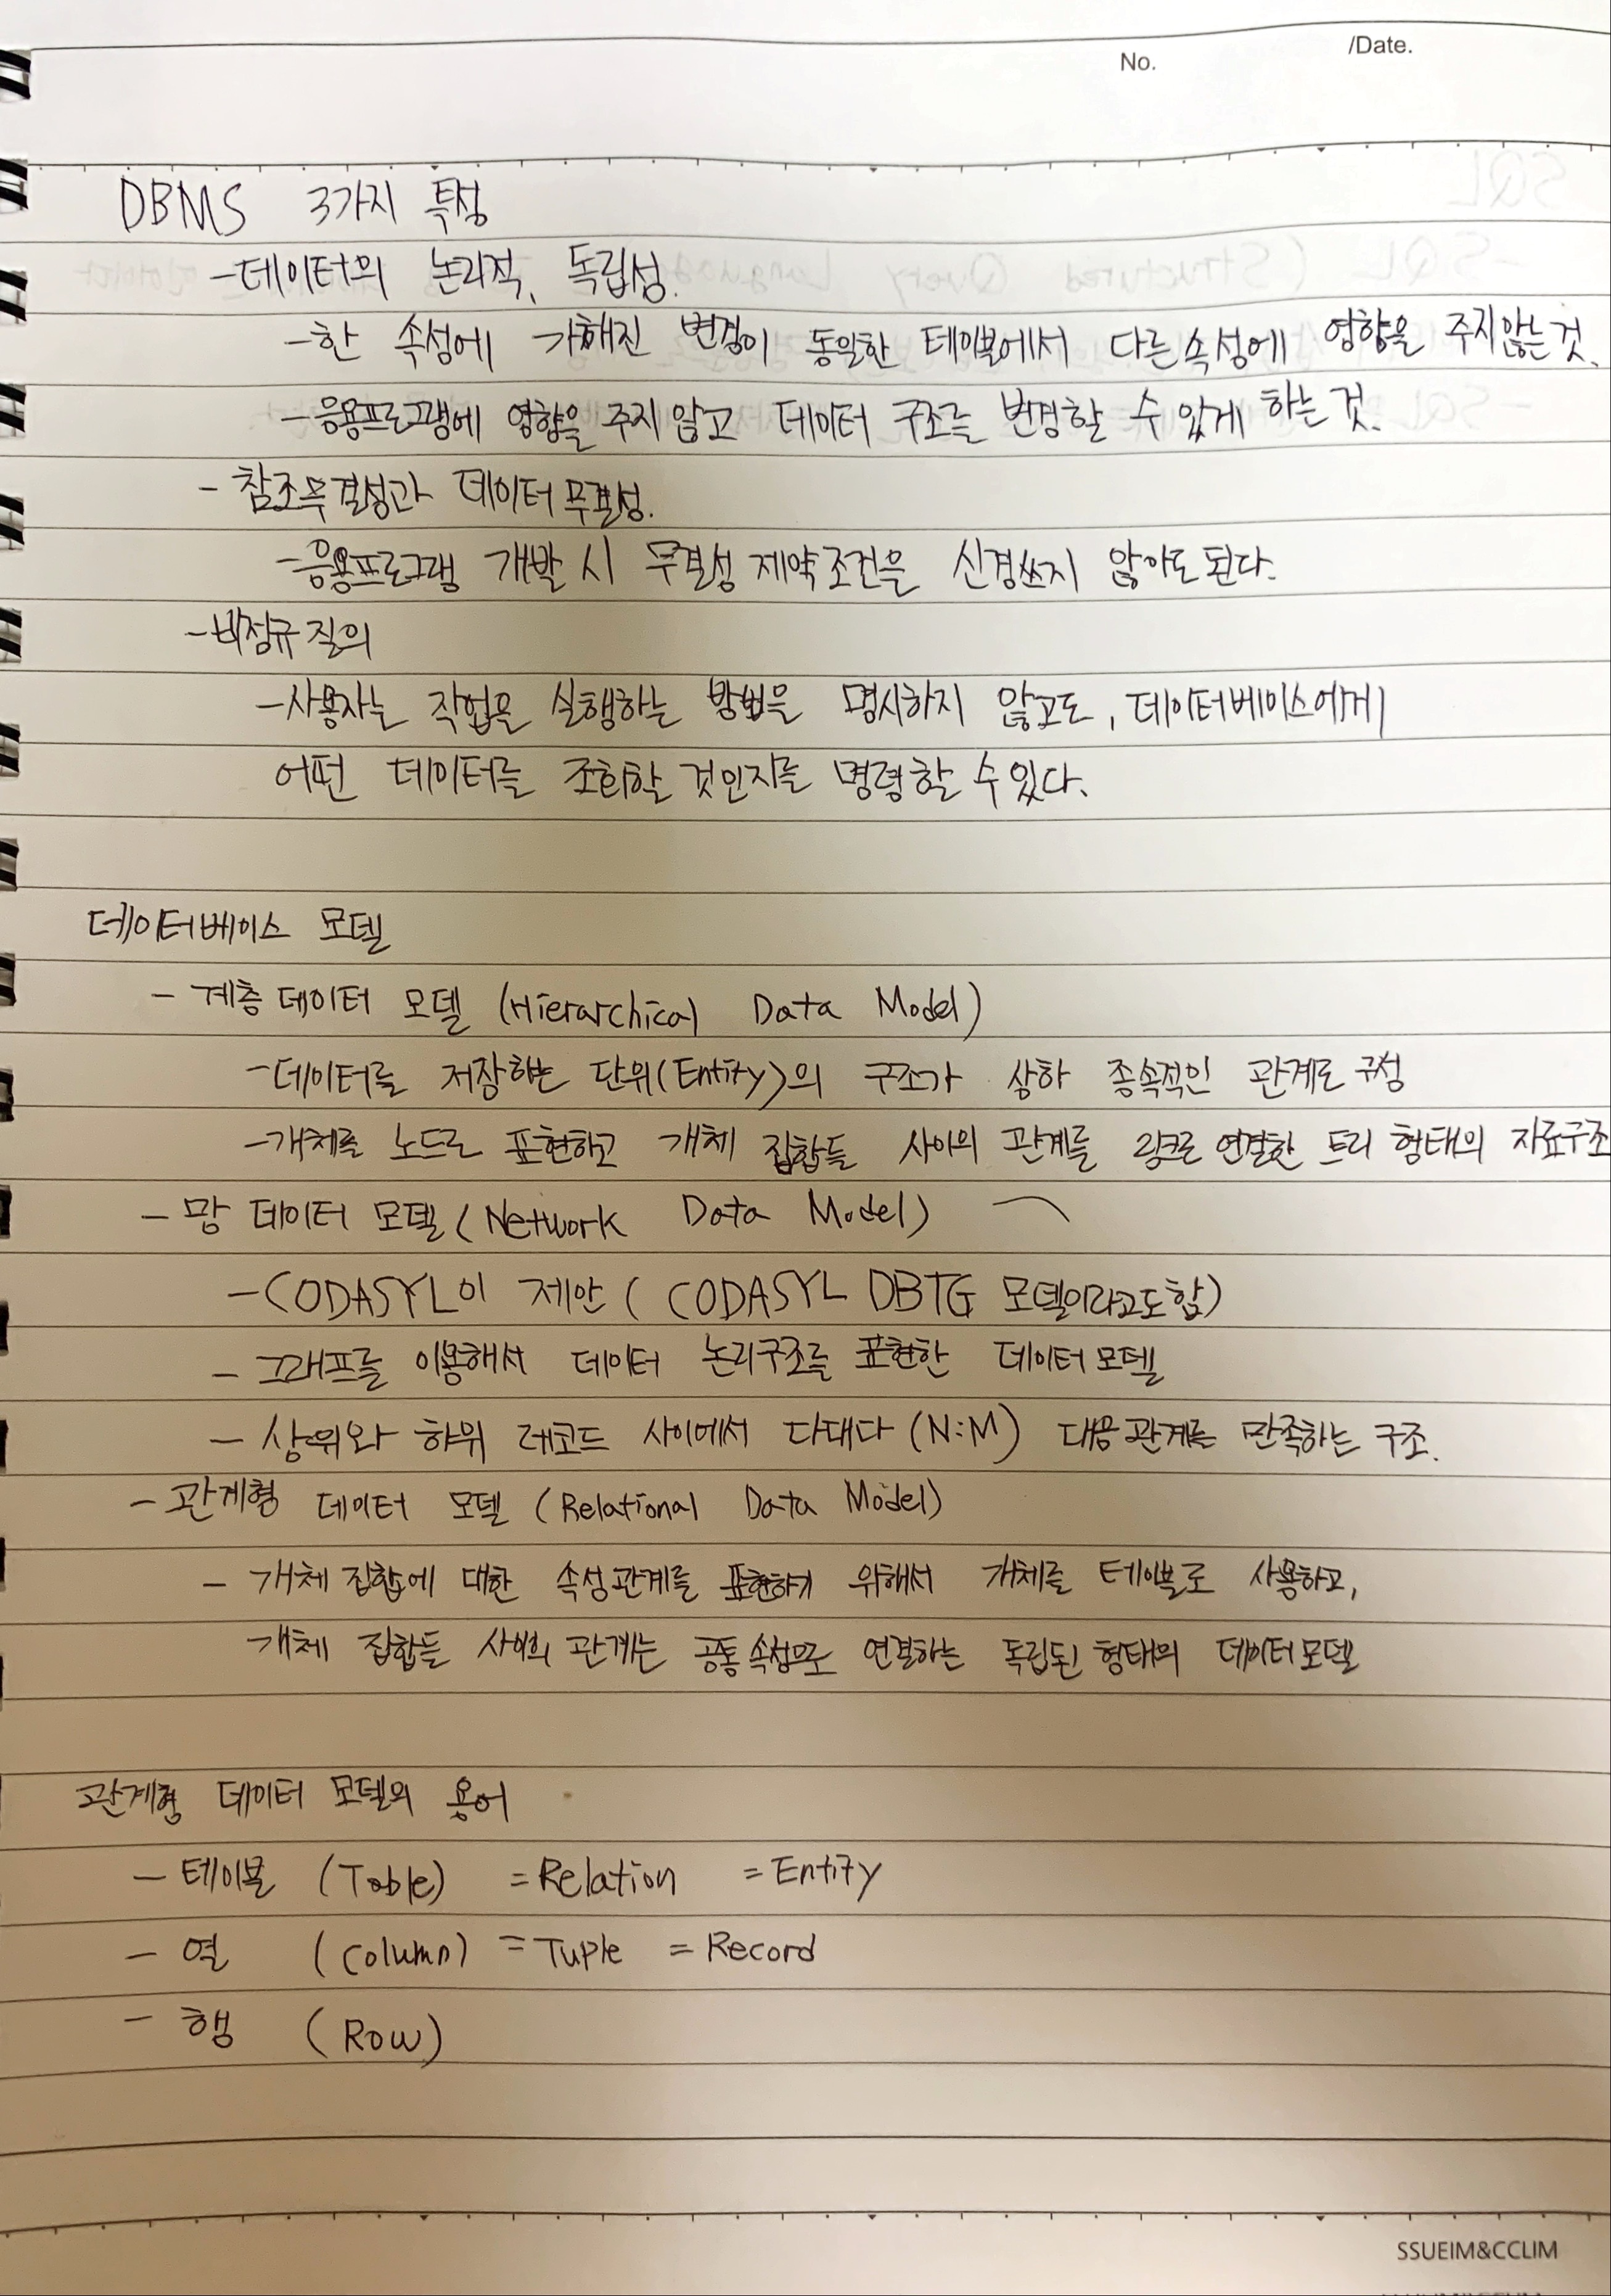 No.
/Date.
DBMS 3가지 특성
-데이터의 논리적, 독립성.
-한 속성에 가해진 변경이 동일한 테이블에서 다른 속성에 영향을 주지않는 것.
-응용프로그램에 영향을 주지 않고 데이터 구조를 변경할 수 있게 하는 것.
- 참조무결성과 데이터 무결성.
-응용프로그램 개발 시 무결성 제약조건을 신경쓰지 않아도 된다.
-비정규 질의
-사용자는 작업을 실행하는 방법을 명시하지 않고도, 데이터베이스에게
어떤 데이터를 조회할 것인지를 명령할 수 있다.
데이터베이스 모델
- 계층 데이터 모델 (Hierarchical Data Model)
-데이터를 저장하는 단위(Entity)의 구조가 상하 종속적인 관계로 구성
-개체를 노드로 표현하고 개체 집합들 사이의 관계를 링크로 연결한 트리 형태의 자료구조
- 망 데이터 모델 (Network Data Model)
-CODASYL이 제안 ( CODASYL DBTG 모델이라고도 함)
- 그래프를 이용해서 데이터 논리구조를 표현한 데이터 모델
- 상위와 하위 레코드 사이에서 다대다 (N:M) 대응관계를 만족하는 구조.
- 관계형 데이터 모델 (Relational Data Model)
- 개체 집합에 대한 속성관계를 표현하기 위해서 개체를 테이블로 사용하고,
개체 집합들 사이의 관계는 공통 속성으로 연결하는 독립된 형태의 데이터 모델
관계형 데이터 모델의 용어
- 테이블 (Table) =Relation =Entity
- 열 (column) =Tuple = Record
- 행 (Row)
SSUEIM&CCLIM